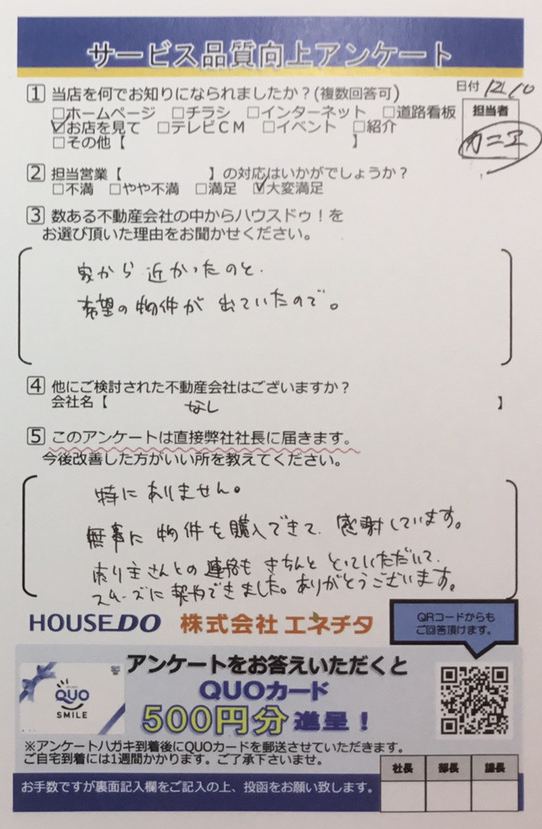 サービス品質向上アンケート
日付 12/10
1 当店を何でお知りになられましたか？(複数回答可)
□ホームページ □チラシ □インターネット □道路看板
☑お店を見て □テレビＣＭ □イベント □紹介
□その他【 】
担当者
カニエ
2 担当営業【 】の対応はいかがでしょうか？
□不満 □やや不満 □満足 ☑大変満足
3 数ある不動産会社の中からハウスドゥ！を
お選び頂いた理由をお聞かせください。
家から近かったのと、
希望の物件が出ていたので。
4 他にご検討された不動産会社はございますか？
会社名【 なし 】
5 このアンケートは直接弊社社長に届きます。
今後改善した方がいい所を教えてください。
特にありません。
無事に物件を購入できて、感謝しています。
売り主さんとの連絡もきちんととっていただいて、
スムーズに契約できました。ありがとうございます。
HOUSEDO 株式会社 エネチタ
QRコードからも
ご回答頂けます。
アンケートをお答えいただくと
QUOカード
500円分進呈！
QUO
SMILE
※アンケートハガキ到着後にQUOカードを郵送させていただきます。
ご自宅到着には1週間かかります。ご了承下さいませ。
社長 部長 課長
お手数ですが裏面記入欄をご記入の上、投函をお願い致します。